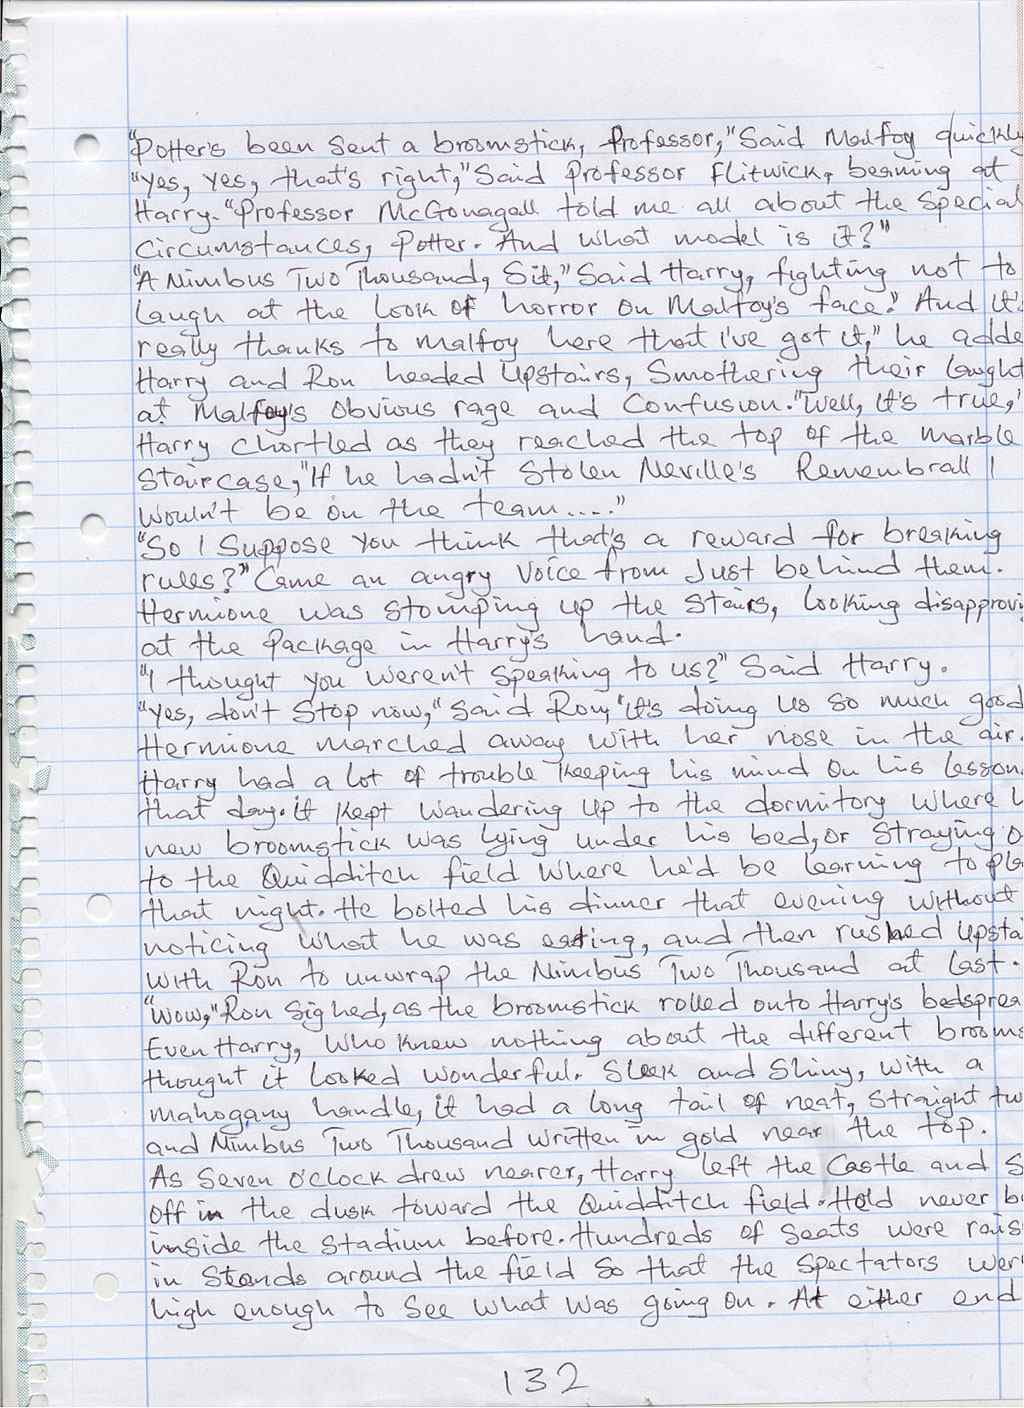 "Potter's been sent a broomstick, Professor," Said Malfoy quickly
"yes, yes, that's right," Said Professor Flitwick, beaming at
Harry. "Professor McGonagall told me all about the Special
Circumstances, Potter. And what model is it?"
"A Nimbus Two Thousand, Sir," Said Harry, fighting not to
Laugh at the look of horror on Malfoy's face." And it's
really thanks to Malfoy here that I've got it," he adde
Harry and Ron headed Upstairs, Smothering their laught
at Malfoy's obvious rage and Confusion. "Well, it's true,"
Harry Chortled as they reached the top of the marble
Staircase, "If he hadn't Stolen Neville's Remembrall I
Wouldn't be on the team....."
"So I Suppose you think that's a reward for breaking
rules?" Came an angry voice from Just behind them.
Hermione was stomping up the stairs, looking disapprovi
at the Package in Harry's hand.
"I thought you weren't speaking to us?" Said Harry.
"Yes, don't Stop now," said Ron, "it's doing us so much good
Hermione marched away with her nose in the air.
Harry had a lot of trouble keeping his mind on his lesson
that day. it kept wandering up to the dormitory where h
new broomstick was lying under his bed, or Straying o
to the Quidditch field where he'd be learning to pla
that night. He bolted his dinner that evening without
noticing what he was eating, and then rushed Upsta
with Ron to unwrap the Nimbus Two Thousand at last.
"Wow," Ron Sighed, as the broomstick rolled onto Harry's bedsprea
Even Harry, who knew nothing about the different brooms
thought it looked wonderful. Sleek and Shiny, with a
mahogany handle, it had a long tail of neat, Straight tw
and Nimbus Two Thousand written in gold near the top.
As Seven o'clock drew nearer, Harry left the Castle and S
off in the dusk toward the Quidditch field. He'd never be
inside the stadium before. Hundreds of seats were rais
in Stands around the field so that the spectators wer
high enough to see what was going on. At either end
132